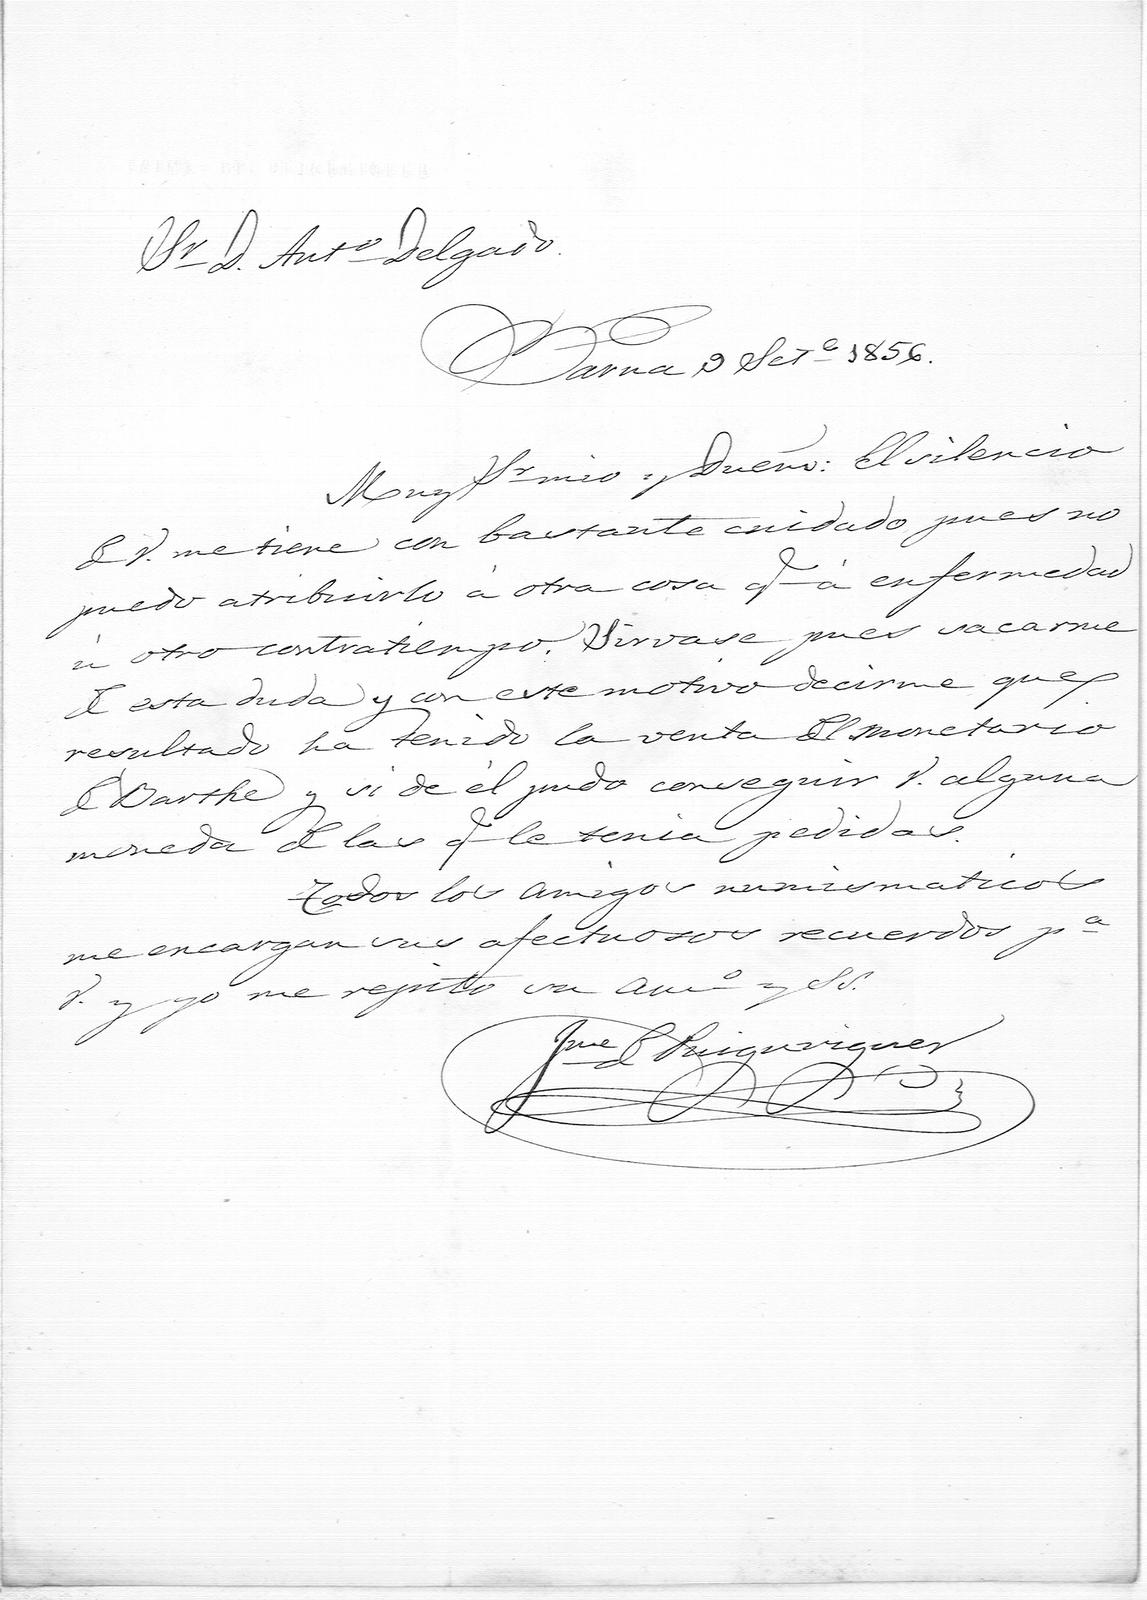 Sr D. Anto Delgado.
Barna 9 Sete 1856.
Muy Sr mio y Dueño: El silencio
de V. me tiene con bastante cuidado pues no
puedo atribuirlo á otra cosa q á enfermedad
ú otro contratiempo. Sirvase pues sacarme
de esta duda y con este motivo decirme que
resultado ha tenido la venta del monetario
de Barthe y si de él pudo conseguir V. alguna
moneda de las q le tenia pedidas.
Todos los amigos numismaticos
me encargan sus afectuosos recuerdos pa
V. y yo me repito su amo y SS.
Jme de Puiguriguer